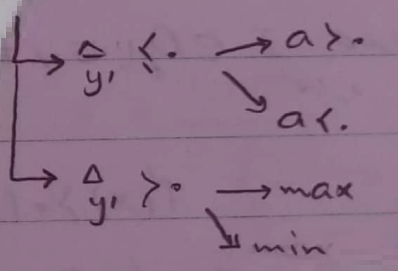 Δ y' ≤ 0 → a > 0
↘ a < 0
Δ y' > 0 → max
↘ min